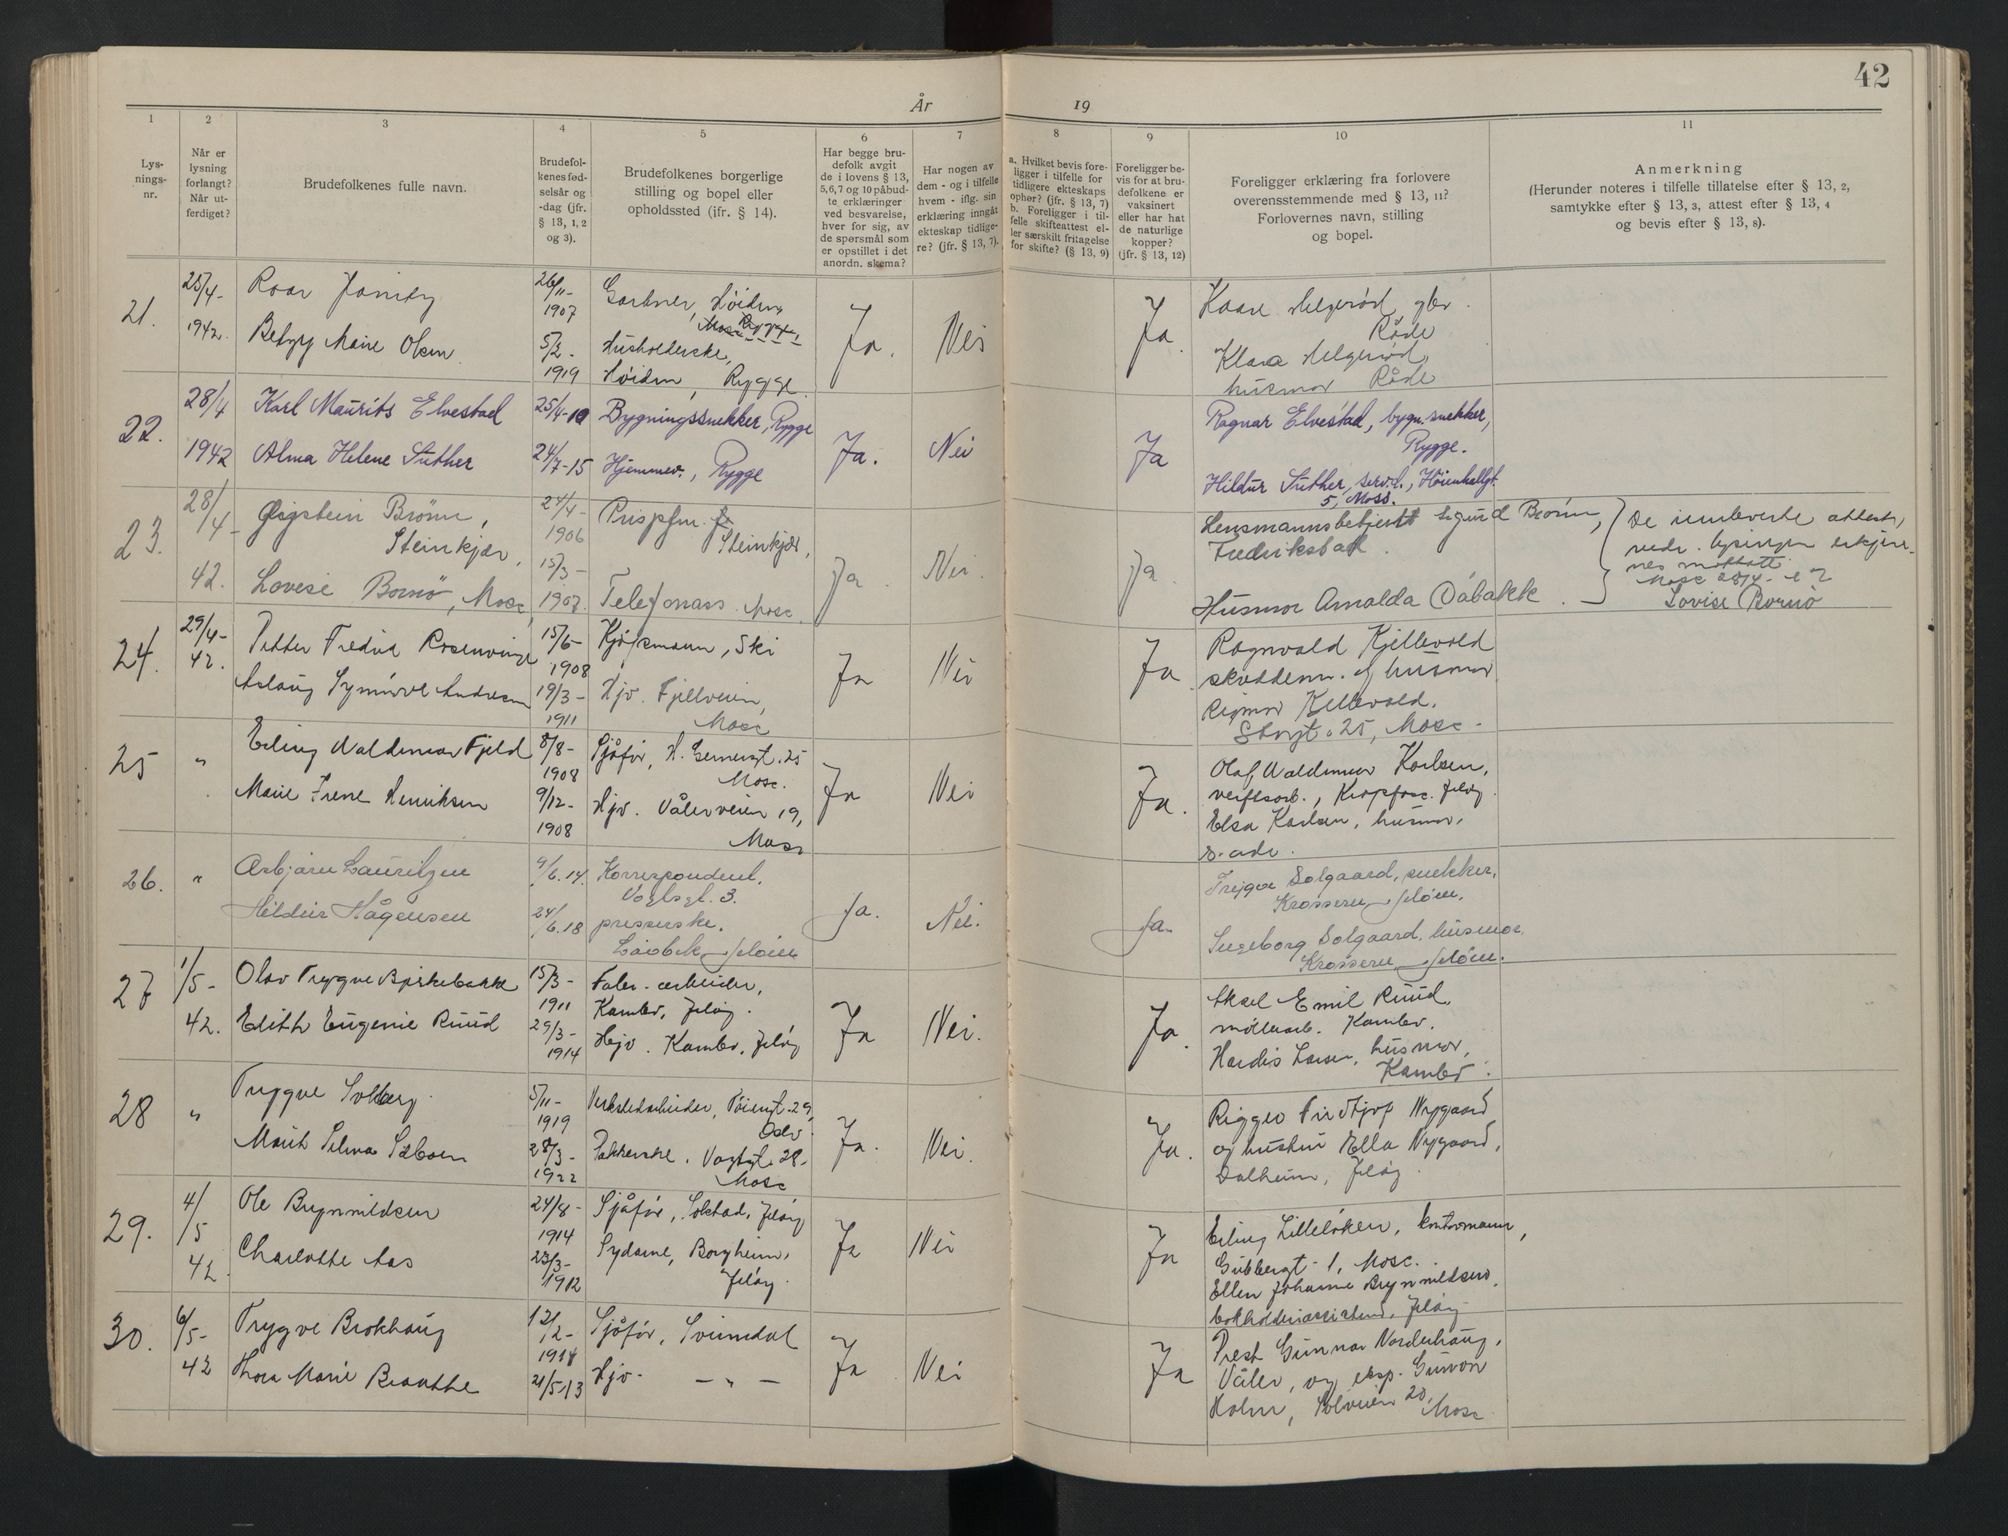 42
År
19
1
2
3
4
5
6
7
8
9
10
11
Lys-
nings-
nr.
Når er
lysning
forlangt?
Når ut-
ferdiget?
Brudefolkenes fulle navn.
Brudefol-
kenes fød-
selsår og
-dag (jfr.
§ 13, 1, 2
og 3).
Brudefolkenes borgerlige
stilling og bopel eller
opholdssted (jfr. § 14).
Har begge bru-
defolk avgit
de i lovens § 13,
5, 6, 7 og 10 påbud-
te erklæringer
ved besvarelse,
hver for sig, av
de spørsmål som
er opstillet i det
anordn. skema?
Har nogen av
dem - og i tilfelle
hvem - iflg. sin
erklæring inngått
ekteskap tidlige-
re? (jfr. § 13, 7).
a. Hvilket bevis fore-
ligger i tilfelle for
tidligere ekteskaps
ophør? (jfr. § 13, 7)
b. Foreligger i til-
felle skifteattest el-
ler særskilt fritagelse
for skifte? (§ 13, 9)
Foreligger be-
vis for at bru-
defolkene er
vaksinert
eller har hat
de naturlige
kopper?
(jfr. § 13, 12)
Foreligger erklæring fra forlovere
overensstemmende med § 13, 11?
Forlovernes navn, stilling
og bopel.
Anmerkning
(Herunder noteres i tilfelle tillatelse efter § 13, 2,
samtykke efter § 13, 3, attest efter § 13, 4
og bevis efter § 13, 8).
21.
25/4-
1942.
Roar
Betzy Marie Olsen
26/11-
1907
5/2-
1919
Gartner, Høiden,
Moss Rygge,
Husholderske,
Høiden, Rygge
Ja.
Nei
Ja.
Kaare Helgerød, gbr.
Råde
Klara Helgerød,
husmor Råde
22.
28/4
1942
Karl Maurits Elvestad
Alma Helene Suther
25/4-10
24/7-15
Bygningssnekker, Rygge
Hjemmev., Rygge
Ja.
Nei
Ja
Ragnar Elvestad, bygn.snekker,
Rygge.
Hildur Suther, serv.d., Høienhallgt.
5, Moss.
23.
28/4-
42.
Øistein Brønn,
Steinkjær,
Lovise Bornø, Moss,
24/4-
1906
15/3-
1907.
Steinkjær,
Telefonass. Moss.
Ja.
Nei.
Ja.
Lensmannsbetjent Sigurd Brønn,
Fredrikstad.
Husmor Arnalda Dåbakk.
De innleverte attester,
vedr. lysingen erkjen-
nes mottatt
Moss 28/4-42
Lovise Bornø
24.
29/4-
42.
Petter Fredrik Rosenvinge
Aslaug Synnøve Andresen
15/6-
1908
19/3-
1911
Kjøpmann, Ski
Hjv. Fjellveien,
Moss
Ja
Nei
Ja
Ragnvald Kjellevold
skotøim. og husmor
Rigmor Kjellevold.
Storgt. 25, Moss.
25
"
Erling Waldemar Fjeld
Marie Irene Henriksen
8/8-
1908
9/12-
1908
Sjåfør, H. Gernersgt. 25
Moss.
Hjv. Vålerveien 19,
Moss
Ja
Nei
Ja.
Olaf Waldemar Karlsen,
verftsarb., Kroppfoss. Jeløy.
Elsa Karlsen, husmor,
s. adr.
26.
"
Asbjørn Lauritzen
Hildur Hågensen
9/6.14.
24/6.18
Korrespondent.
Vogtsgt. 3.
presserske.
Jeløen
Ja.
Nei.
Ja.
Trygve Solgaard, snekker,
Krosseren, Jeløen.
Ingeborg Solgaard, husmor,
Krosseren, Jeløen.
27
1/5-
42.
Olav Trygve Bjerkebakke
Edith Eugenie Ruud
15/3-
1911
29/3-
1914
Fabr. arbeider,
Kambo, Jeløy.
Hjv. Kambo, Jeløy
Ja
Nei.
Ja.
Aksel Emil Ruud,
møllearb. Kambo.
Hardis Larsen, husmor,
Kambo.
28
"
Trygve Solberg
Marit Selma Sæboen
5/11-
1919
28/3-
1922
Verkstedarbeider, Tøiengt. 29,
Oslo.
Pakkerske, Vogtsgt. 28-
Moss
Ja.
Nei.
Ja.
Fridtjof Nygaard
og hustru Ella Nygaard,
Dalheim, Jeløy.
29.
4/5
42.
Ole Brynmildsen
Charlotte Aas
24/8-
1914
23/3-
1912
Sjåfør, Solstad, Jeløy
Sydame, Borgheim,
Jeløy.
Ja
Nei
Ja
Erling Lilleløken, kontormann,
Gubbergt. 1, Moss.
Ellen Johanne Brynmildsen,
bokholderassistent, Jeløy
30.
6/5-
42
Trygve Brokhaug
Thora Marie Braathe
12/2-
1914
21/5 13
Sjåfør, Svinndal
Hjv. — " —
Ja
Nei
Ja
Prest Gunnar Norderhaug,
Våler, og eksp. Gunvor
Holm, Solveien 20,
Moss